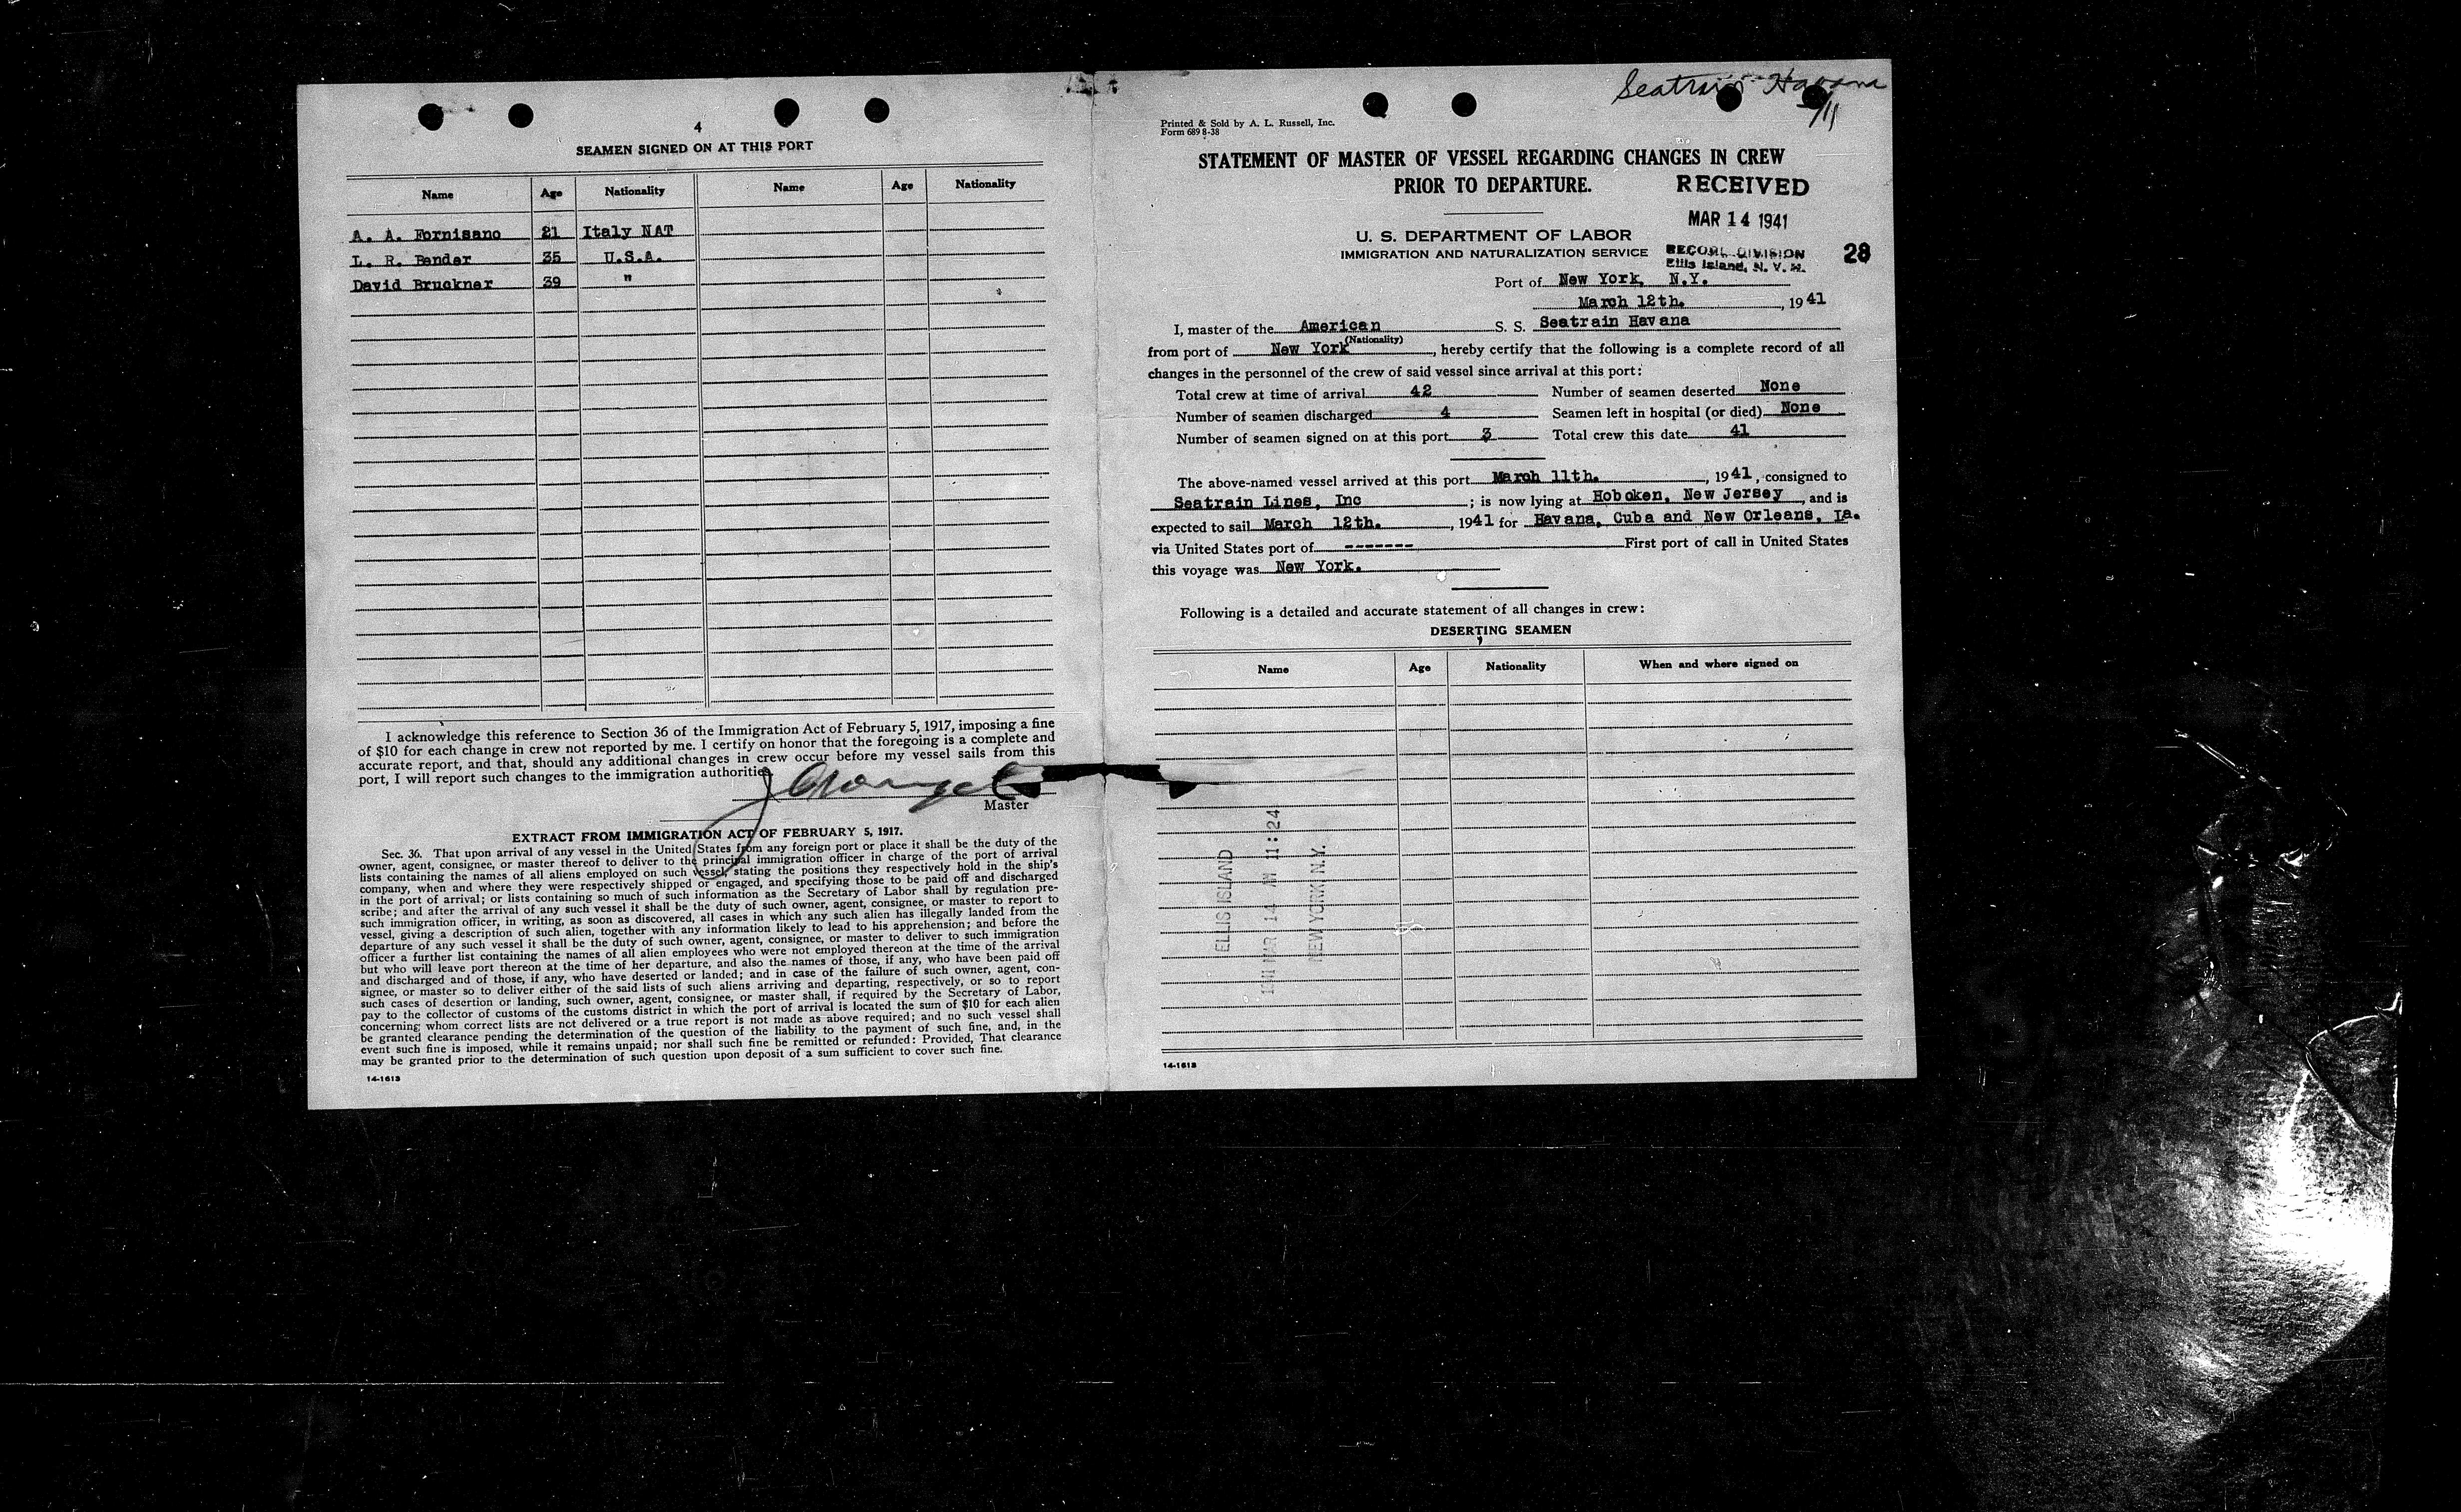 4
SEAMEN SIGNED ON AT THIS PORT
Name Age Nationality Name Age Nationality
A. A. Fornisano 21 Italy NAT
L. R. Bender 35 U.S.A.
David Bruckner 39 "
I acknowledge this reference to Section 36 of the Immigration Act of February 5, 1917, imposing a fine
of $10 for each change in crew not reported by me. I certify on honor that the foregoing is a complete and
accurate report, and that, should any additional changes in crew occur before my vessel sails from this
port, I will report such changes to the immigration authorities
Master
EXTRACT FROM IMMIGRATION ACT OF FEBRUARY 5, 1917.
Sec. 36. That upon arrival of any vessel in the United States from any foreign port or place it shall be the duty of the
owner, agent, consignee, or master thereof to deliver to the principal immigration officer in charge of the port of arrival
lists containing the names of all aliens employed on such vessel, stating the positions they respectively hold in the ship's
company, when and where they were respectively shipped or engaged, and specifying those to be paid off and discharged
in the port of arrival; or lists containing so much of such information as the Secretary of Labor shall by regulation pre-
scribe; and after the arrival of any such vessel it shall be the duty of such owner, agent, consignee, or master to report to
such immigration officer, in writing, as soon as discovered, all cases in which any such alien has illegally landed from the
vessel, giving a description of such alien, together with any information likely to lead to his apprehension; and before the
departure of any such vessel it shall be the duty of such owner, agent, consignee, or master to deliver to such immigration
officer a further list containing the names of all alien employees who were not employed thereon at the time of the arrival
but who will leave port thereon at the time of her departure, and also the names of those, if any, who have been paid off
and discharged and of those, if any, who have deserted or landed; and in case of the failure of such owner, agent, con-
signee, or master so to deliver either of the said lists of such aliens arriving and departing, respectively, or so to report
such cases of desertion or landing, such owner, agent, consignee, or master shall, if required by the Secretary of Labor,
pay to the collector of customs of the customs district in which the port of arrival is located the sum of $10 for each alien
concerning whom correct lists are not delivered or a true report is not made as above required; and no such vessel shall
be granted clearance pending the determination of the question of the liability to the payment of such fine, and, in the
event such fine is imposed, while it remains unpaid; nor shall such fine be remitted or refunded: Provided, That clearance
may be granted prior to the determination of such question upon deposit of a sum sufficient to cover such fine.
14-1613
Seatrain Havana
3/11
Printed & Sold by A. L. Russell, Inc.
Form 689 8-38
STATEMENT OF MASTER OF VESSEL REGARDING CHANGES IN CREW
PRIOR TO DEPARTURE.
RECEIVED
MAR 14 1941
U. S. DEPARTMENT OF LABOR
IMMIGRATION AND NATURALIZATION SERVICE
RECORD DIVISION
Ellis Island, N. Y. H.
28
Port of New York, N.Y.
March 12th. , 1941
I, master of the American S. S. Seatrain Havana
(Nationality)
from port of New York , hereby certify that the following is a complete record of all
changes in the personnel of the crew of said vessel since arrival at this port:
Total crew at time of arrival 42 Number of seamen deserted None
Number of seamen discharged 4 Seamen left in hospital (or died) None
Number of seamen signed on at this port 3 Total crew this date 41
The above-named vessel arrived at this port March 11th. , 1941, consigned to
Seatrain Lines, Inc ; is now lying at Hoboken, New Jersey , and is
expected to sail March 12th. , 1941 for Havana, Cuba and New Orleans, La.
via United States port of ------- First port of call in United States
this voyage was New York.
Following is a detailed and accurate statement of all changes in crew:
DESERTING SEAMEN
Name Age Nationality When and where signed on
ELLIS ISLAND
1941 MAR 14 AM 11:24
NEW YORK N.Y.
14-1613